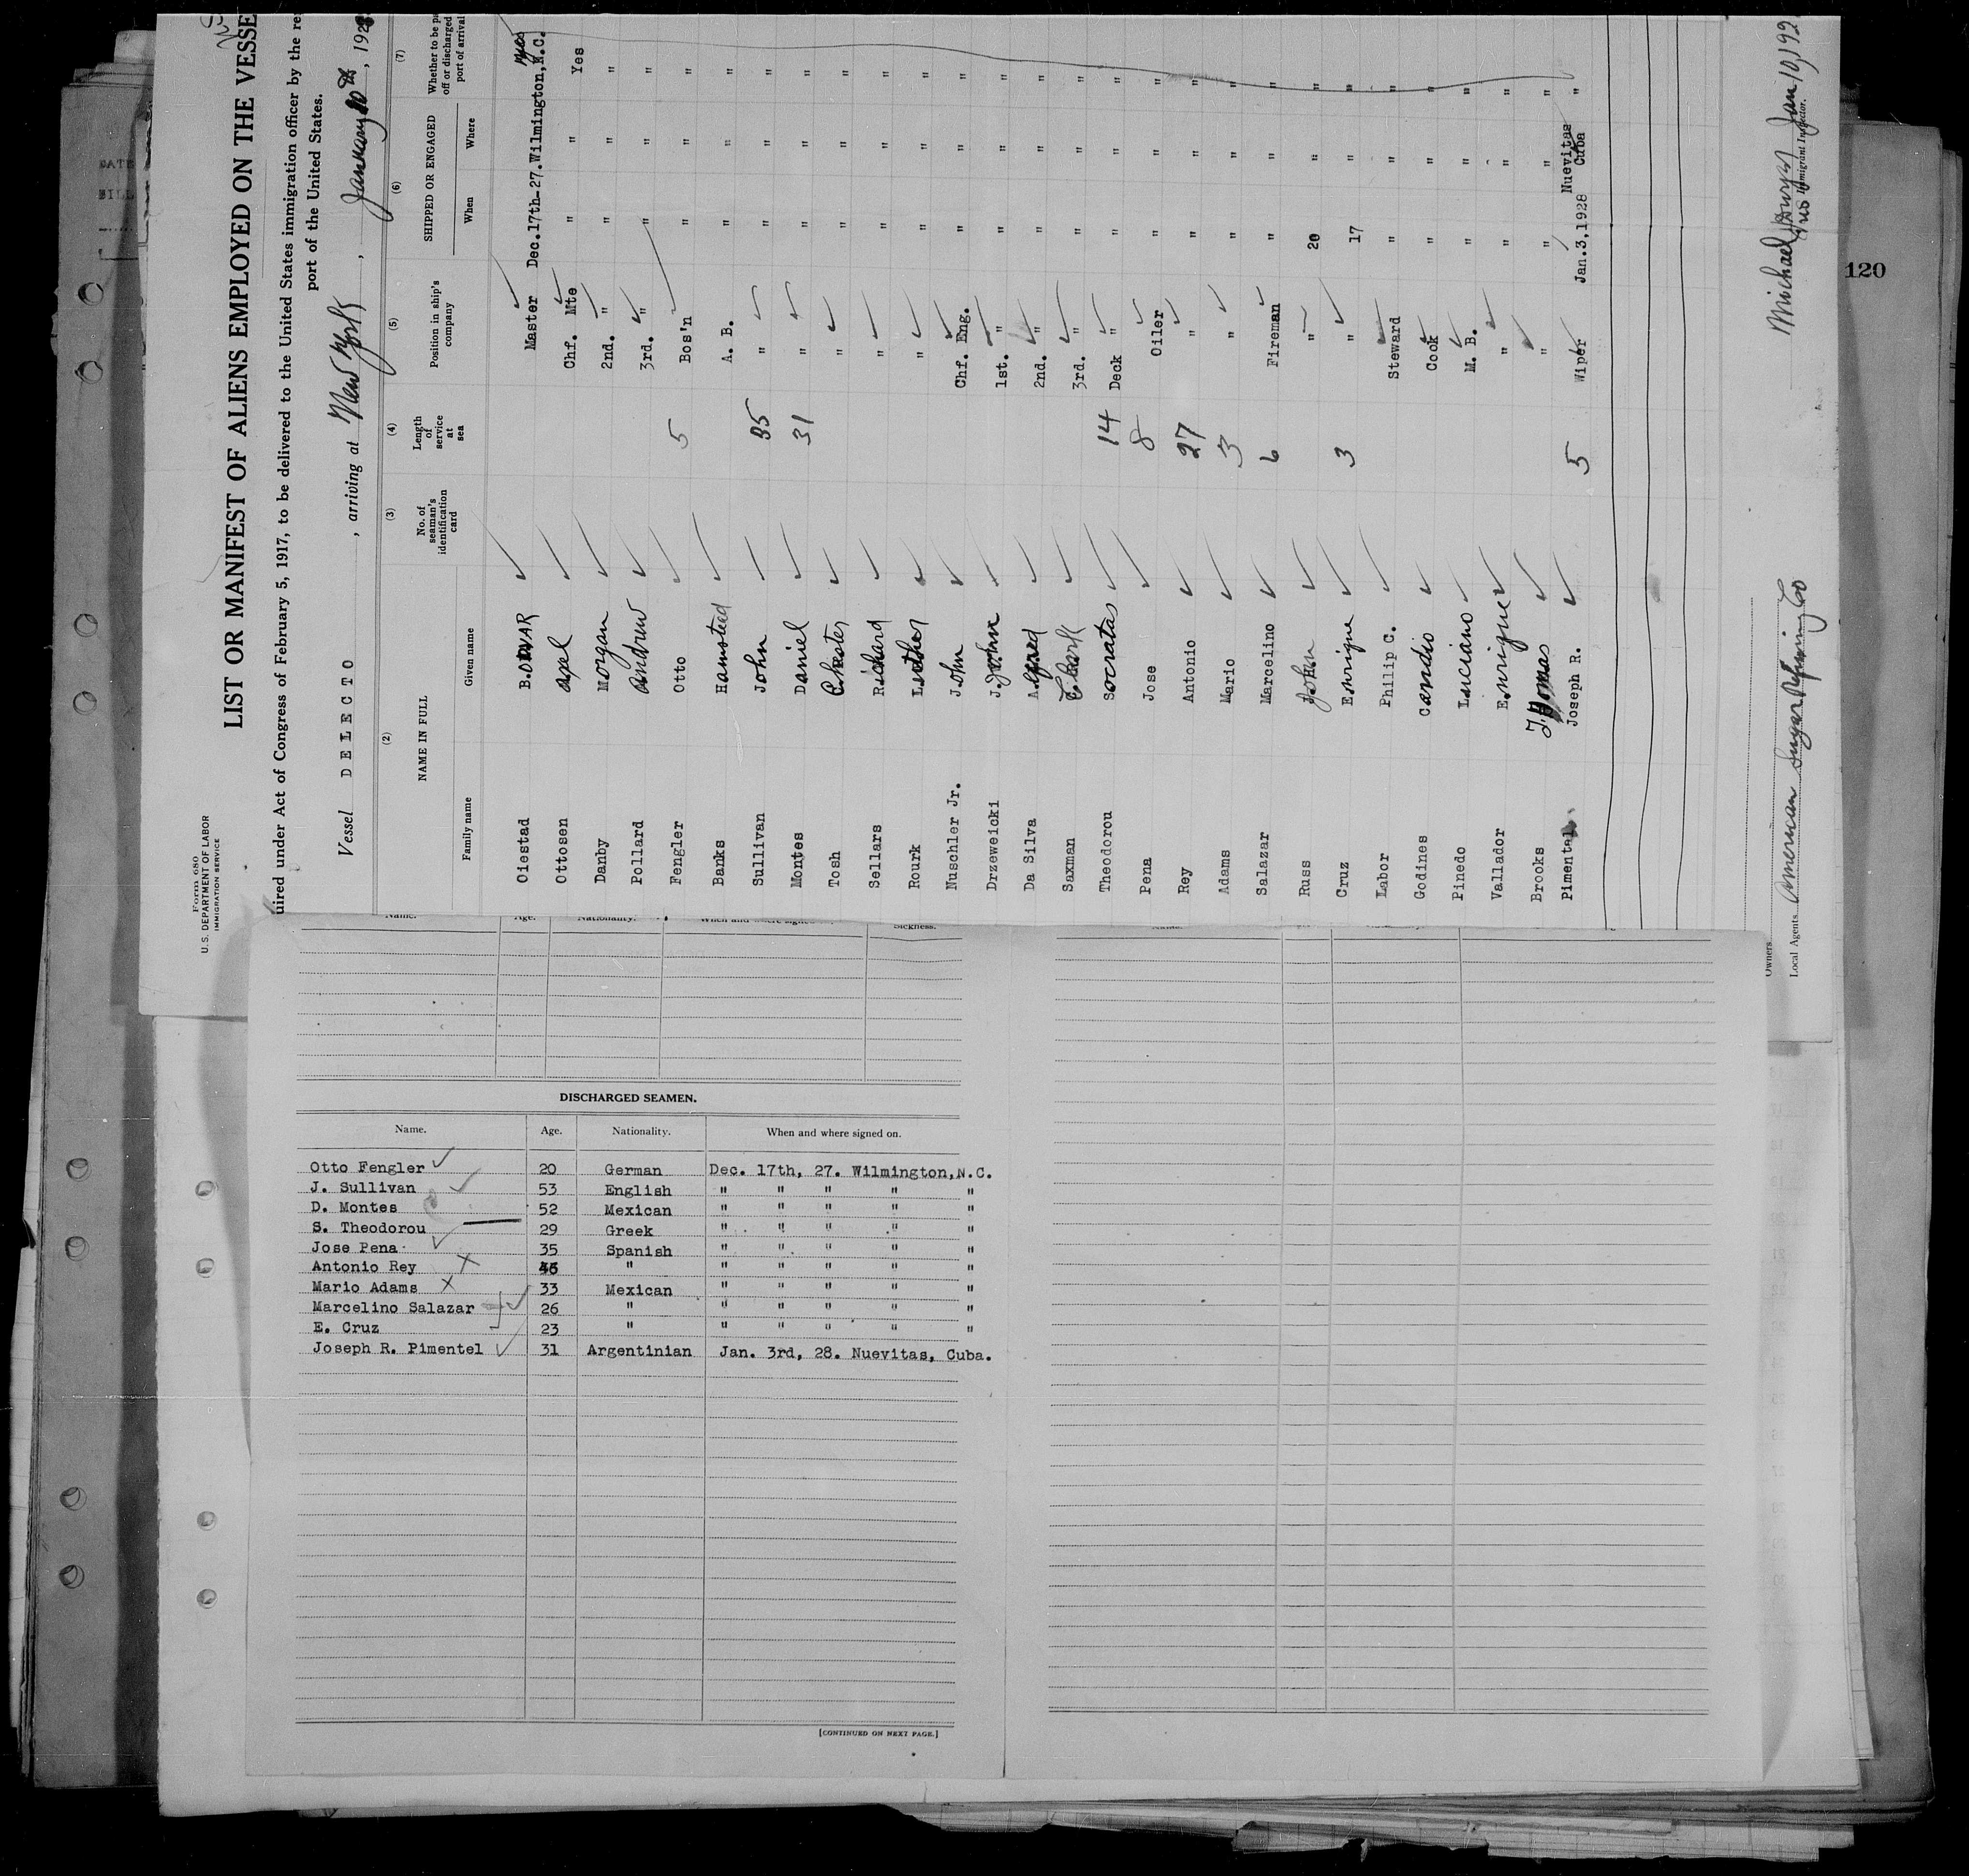 Form 680
U. S. DEPARTMENT OF LABOR
IMMIGRATION SERVICE
LIST OR MANIFEST OF ALIENS EMPLOYED ON THE VESSE
uired under Act of Congress of February 5, 1917, to be delivered to the United States immigration officer by the re
port of the United States.
Vessel DELECTO , arriving at New York , January 10th , 192
(2) (3) (4) (5) (6) (7)
NAME IN FULL No. of seaman's identification card Length of service at sea Position in ship's company SHIPPED OR ENGAGED Whether to be pa off or discharged port of arrival
Family name Given name When Where
Oiestad Master Dec.17th-27.Wilmington,N.C. yes
Ottosen Axel Chf. Mte " " Yes
Danby Morgan 2nd. " " " "
Pollard Andrew 3rd. " " " "
Fengler Otto 5 Bos'n " " "
Banks Hamsteed A. B. " " "
Sullivan John 35 " " " "
Montes Daniel 31 " " " "
Tosh Chester " " " "
Sellars Richard " " " "
Rourk Luther " " " "
Nuschler Jr. John Chf. Eng. " " "
Drzeweicki J. John 1st. " " " "
Da Silva Alfred 2nd. " " " "
Saxman 3rd. " " " "
Theodorou Socratas 14 Deck " " " "
Pena Jose 8 Oiler " " "
Rey Antonio 27 " " " "
Adams Mario 3 " " " "
Salazar Marcelino 6 Fireman " " "
Russ John " 20 " "
Cruz Enrique 3 " 17 " "
Labor Philip C. Steward " " "
Godines Candio Cook " " "
Pinedo Luciano M. B. " " "
Vallador Enrique " " " "
Brooks Thomas " " " "
Pimentel Joseph R. 5 Wiper Jan.3,1928 Nuevitas Cuba "
Owners
Local Agents American Sugar Refining Co
Michael Jan 10, 192
Immigrant Inspector.
120
Name. Age. Nationality. When and where signed
Sickness.
DISCHARGED SEAMEN.
Name. Age. Nationality. When and where signed on.
Otto Fengler 20 German Dec. 17th, 27. Wilmington,N.C.
J. Sullivan 53 English " " " " "
D. Montes 52 Mexican " " " " "
S. Theodorou 29 Greek " " " " "
Jose Pena 35 Spanish " " " " "
Antonio Rey " " " " " "
Mario Adams 33 Mexican " " " " "
Marcelino Salazar 26 " " " " " "
E. Cruz 23 " " " " " "
Joseph R. Pimentel 31 Argentinian Jan. 3rd, 28. Nuevitas, Cuba.
[CONTINUED ON NEXT PAGE.]